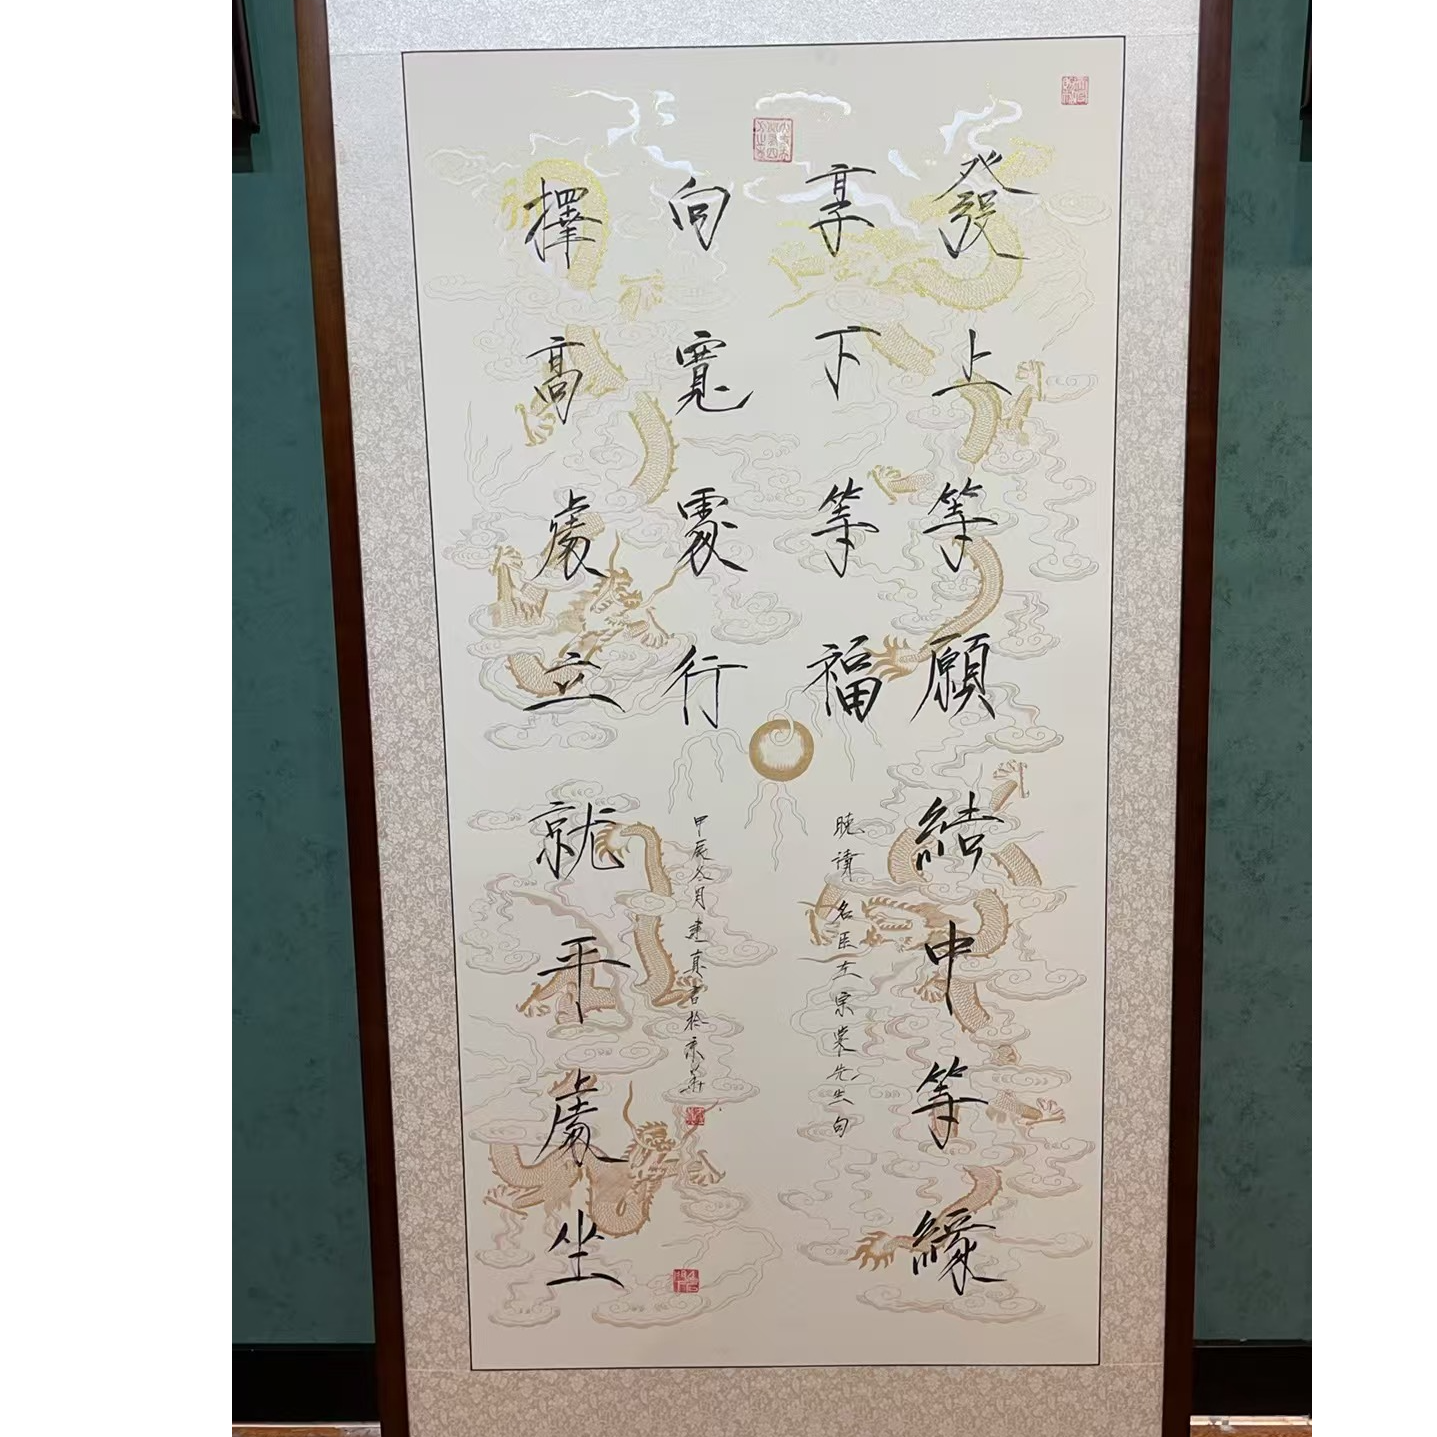 發上等願結中等緣
享下等福
晓讀名臣左宗棠先生句
擇高處立就平處坐
向寬處行
甲辰冬月建真書於京華